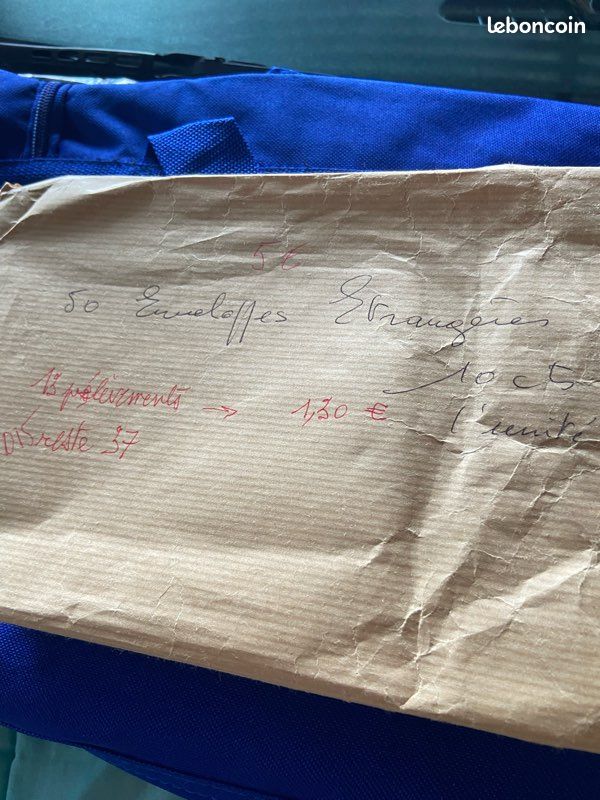 leboncoin
5€
50 Enveloppes Etrangères
10 cts
l'unité
13 prélèvements → 1,30 €
reste 37